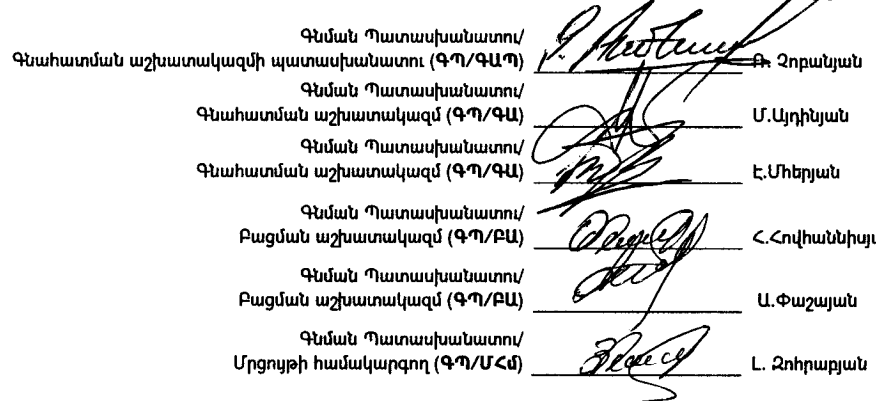 Գնման Պատասխանատու/
Գնահատման աշխատակազմի պատասխանատու (ԳՊ/ԳԱՊ) Զոբանյան
Գնման Պատասխանատու/
Գնահատման աշխատակազմ (ԳՊ/ԳԱ) Մ.Այդինյան
Գնման Պատասխանատու/
Գնահատման աշխատակազմ (ԳՊ/ԳԱ) Է.Մհերյան
Գնման Պատասխանատու/
Բացման աշխատակազմ (ԳՊ/ԲԱ) Հ.Հովհաննիսյ
Գնման Պատասխանատու/
Բացման աշխատակազմ (ԳՊ/ԲԱ) Ա.Փաշայան
Գնման Պատասխանատու/
Մրցույթի համակարգող (ԳՊ/ՄՀմ) Լ. Զոհրաբյան